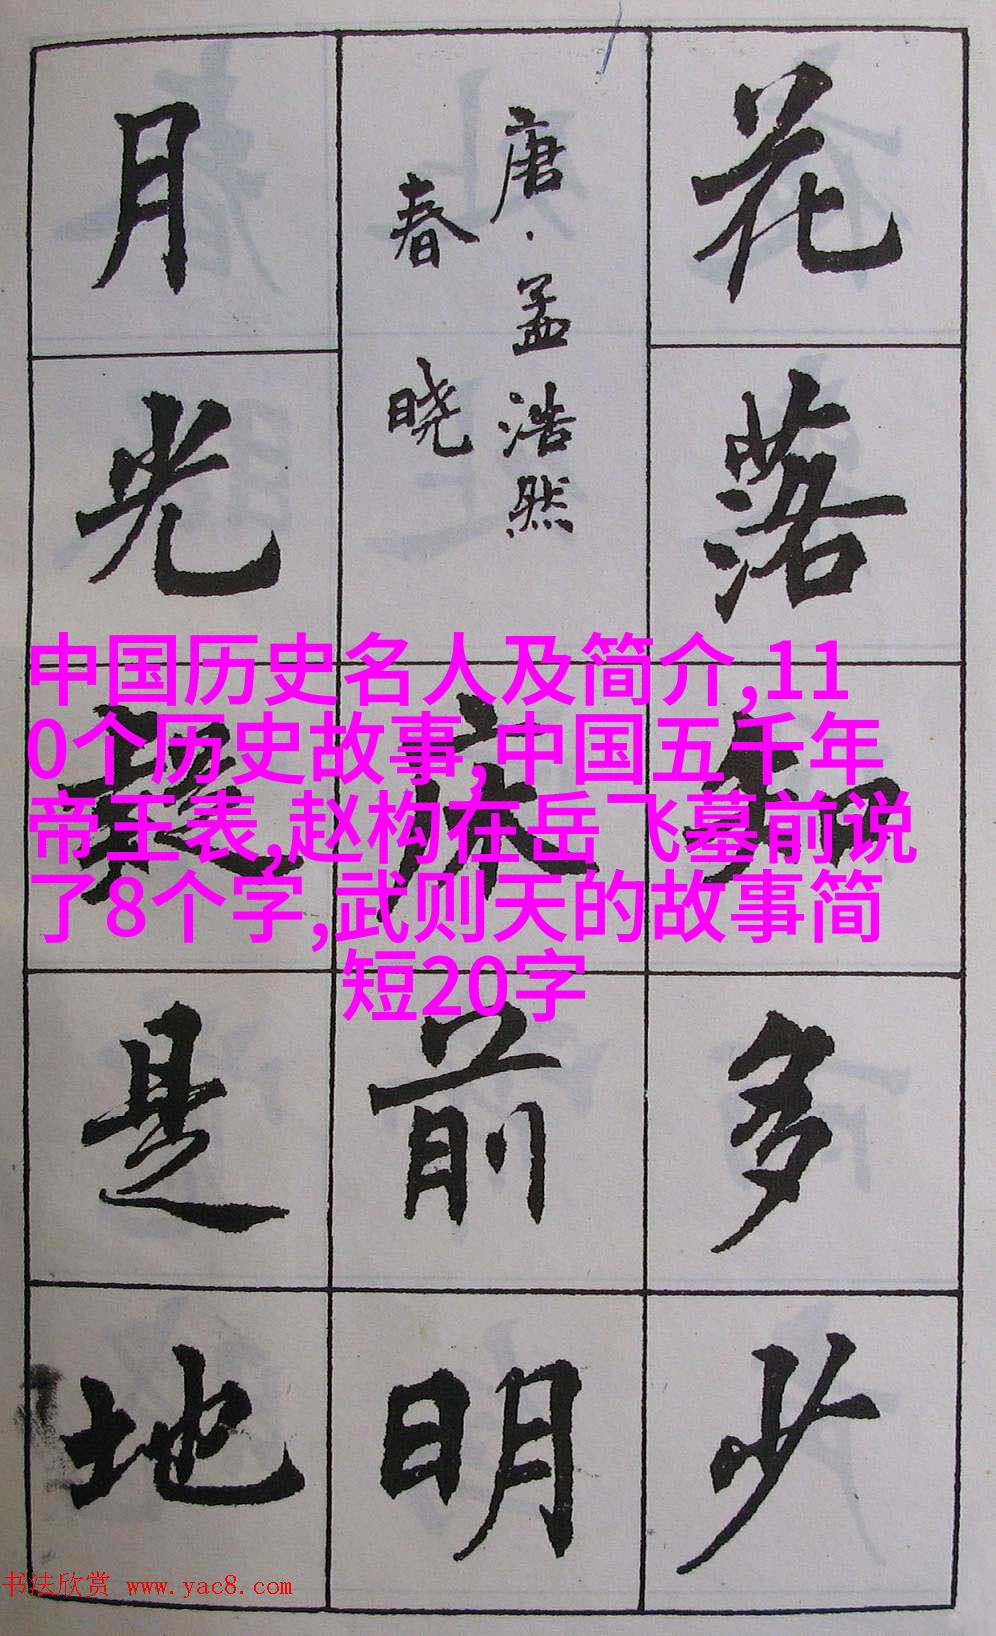 花落知多少
唐·孟浩然
春晓
床前明
月光疑是地
中国历史名人及简介,11
0个历史故事,中国五千年
帝王表,赵构在岳飞墓前说
了8个字,武则天的故事简
短20字
书法欣赏 www.yac8.com